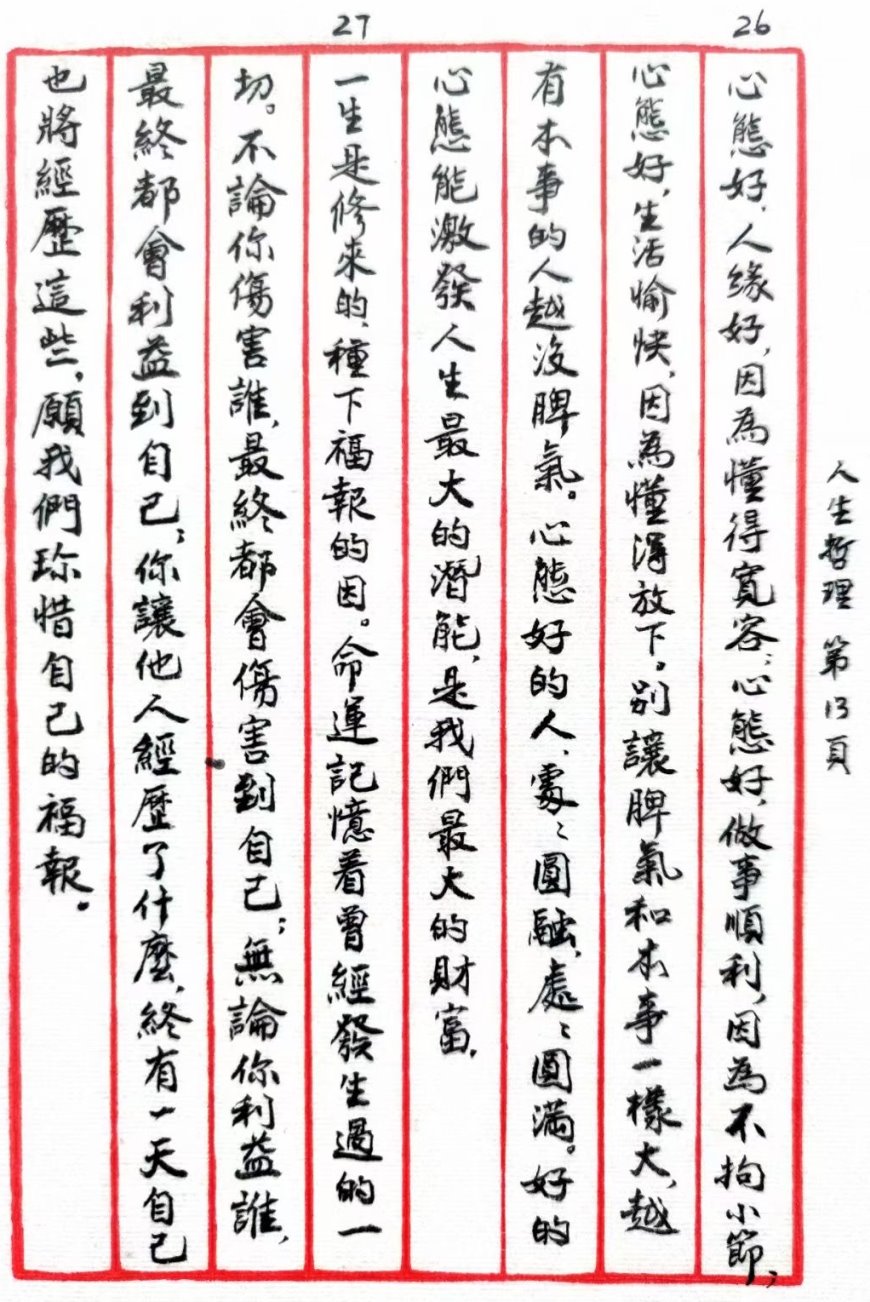 人生哲理 第13頁
26
心態好，人緣好，因為懂得寬容；心態好，做事順利，因為不拘小節；
心態好，生活愉快，因為懂得放下。別讓脾氣和本事一樣大，越
有本事的人越沒脾氣。心態好的人，處々圓融，處々圓滿。好的
心態能激發人生最大的潛能，是我們最大的財富。
27
一生是修來的，種下福報的因。命運記憶着曾經發生過的一
切。不論你傷害誰，最終都會傷害到自己；無論你利益誰，
最終都會利益到自己；你讓他人經歷了什麼，終有一天自己
也將經歷這些，願我們珍惜自己的福報。